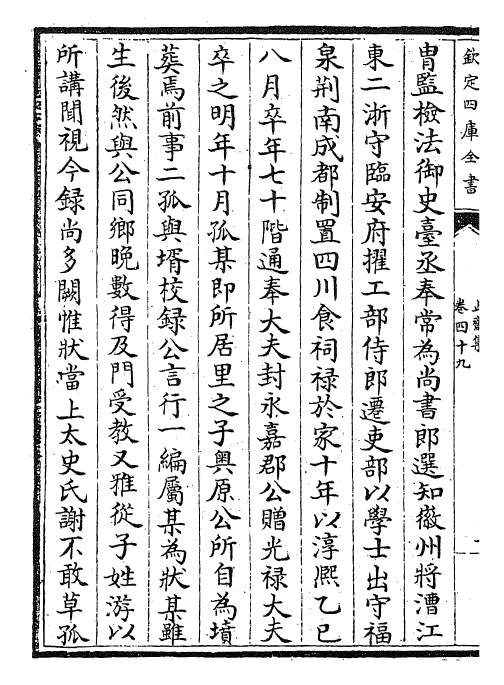 欽定四庫全書
止齋集
卷四十九
胄監檢法御史臺丞奉常為尚書郎選知徽州將漕江
東二浙守臨安府擢工部侍郎遷吏部以學士出守福
泉荆南成都制置四川食祠祿於家十年以淳熙乙巳
八月卒年七十階通奉大夫封永嘉郡公贈光祿大夫
卒之明年十月孤某即所居里之子奥原公所自為墳
葬焉前事二孤與壻校録公言行一編屬某為狀某雖
生後然與公同鄉晩數得及門受教又雅從子姓游以
所講聞視今録尚多闕惟狀當上太史氏謝不敢草孤